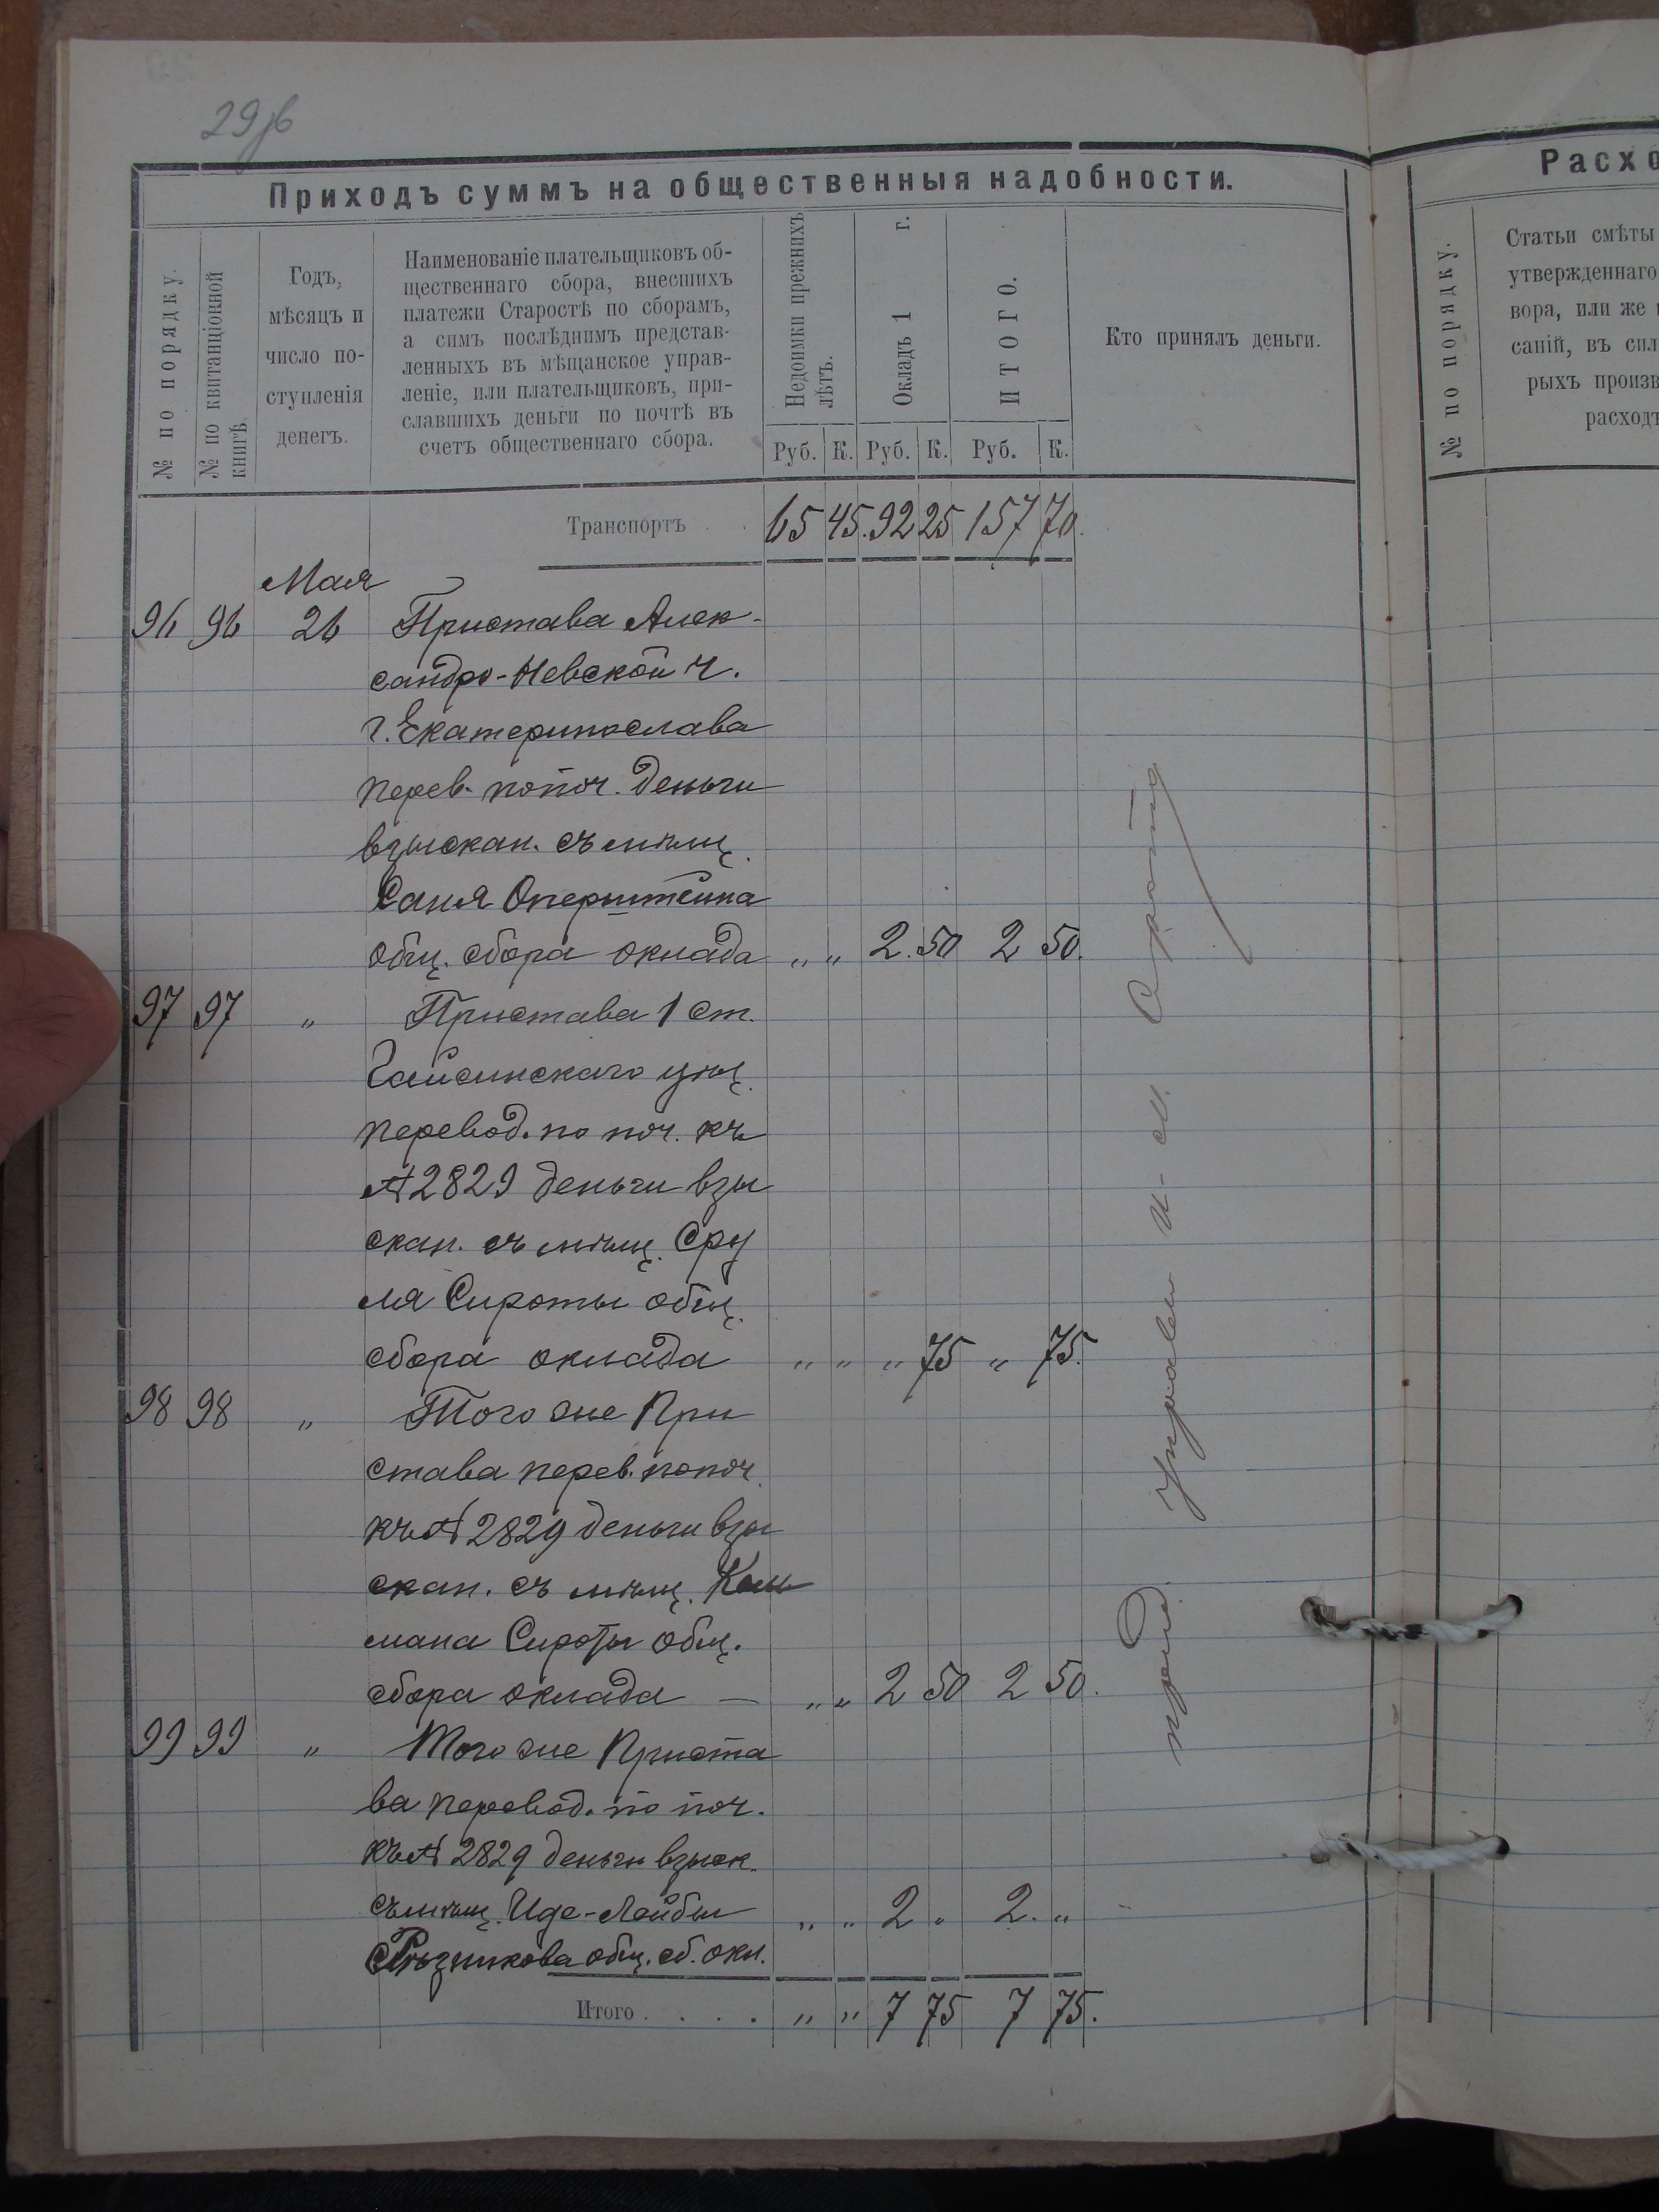 29 об
Приходъ суммъ на общественныя надобности.
№ по порядку.
№ по квитанціонной
книгѣ.
Годъ,
мѣсяцъ и
число по-
ступленія
денегъ.
Наименованіе плательщиковъ об-
щественнаго сбора, внесшихъ
платежи Старостѣ по сборамъ,
а симъ послѣднимъ представ-
ленныхъ въ мѣщанское управ-
леніе, или плательщиковъ, при-
славшихъ деньги по почтѣ въ
счетъ общественнаго сбора.
Недоимки прежнихъ
лѣтъ.
Окладъ 1 г.
ИТОГО.
Кто принялъ деньги.
Руб. К. Руб. К. Руб. К.
Транспортъ . . 65 45. 92 25 157 70.
Мая
96 96 26 Пристава Алек-
сандро-Невской ч.
г. Екатеринослава
перев. по поч. деньги
взыскан. съ мѣщ.
Саня Оперштейна
общ. сбора оклада „ „ 2. 50 2 50.
97 97 „ Пристава 1 ст.
Гайсинскаго уѣзд.
перевод. по поч. къ
№ 2829 деньги взы
скан. съ мѣщ. Сру
ля Сироты общ.
сбора оклада „ „ „ 75 „ 75.
98 98 „ Того же При
става перев. по поч.
къ № 2829 деньги взы
скан. съ мѣщ. Каль
мана Сироты общ.
сбора оклада — „ „ 2 50 2 50.
99 99 „ Того же Приста
ва перевод. по поч.
къ № 2829 деньги взыск.
съ мѣщ. Иде-Лейбы „ „ 2 „ 2. „
Рѣзникова общ. сб. окл.
Итого . . . . „ „ 7 75 7 75.
Расхо
№ по порядку.
Статьи смѣты
утвержденнаго
вора, или же
саній, въ сил
рыхъ произв
расходъ